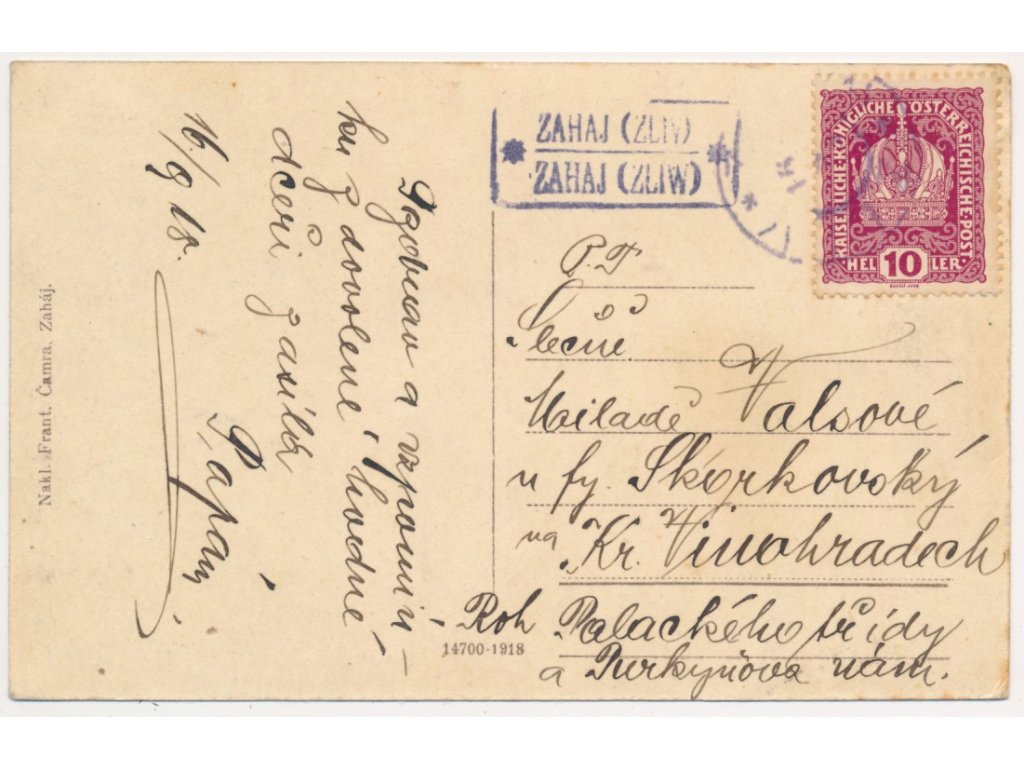 16/9 18.
Pozdrav a vzpomín-
ku z dovolené hodné
dceři zasílá
Papá
Nakl. Frant. Čamra, Zaháj.
14700-1918
ZAHAJ (ZLIV)
ZAHAJ (ZLIW)
KAISERLICHE KÖNIGLICHE ÖSTERREICHISCHE POST
HELLER
10
P. T.
Slečně
Miladě Valsové
u fy. Škorkovský
na Kr. Vinohradech
Roh Palackého třídy
a Purkyňova nám.